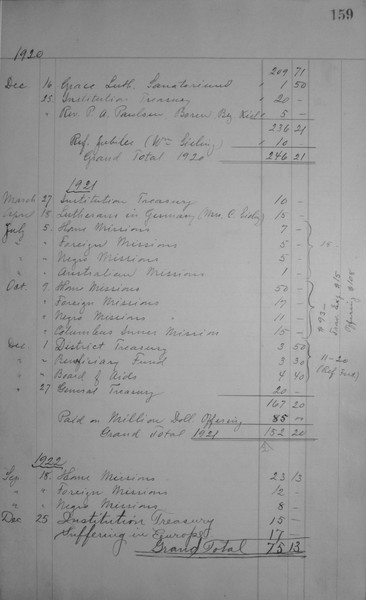 159
1920
209 71
Dec 16 Grace Luth. Sanatorium " 1 50
25 Institution Treasury " 20 -
" Rev. P. A. Paulsen, Boren, Bez. Kiel " 5 -
236 21
Ref. Jubilee (Wm " 10 -
Grand Total 1920 246 21
1921
March 27 Institution Treasury 10 -
April 15 Lutherans in Germany (Mrs C. 15 -
July 5 Home Missions 7 -
" Foreign Missions 5 -
" " Negro Missions 5 - 18
" " Australian Missions 1 -
Oct. 9 Home Missions 50 -
" Foreign Missions 17 -
" " Negro Missions " 11 - $93-
" Columbus Inner Mission 15 -
Dec 1 District Treasury 3 50
" " Beneficiary Fund 3 30 11-20
" " Board of Aids 4 40 (Ref. Fest)
" 27 General Treasury 20 -
167 20
Paid on Million Doll. Offering 85 00
Grand Total 1921 152 20
1922
Sep. 18 Home Missions 23 13
" " Foreign Missions 12 -
" " Negro Missions 8 -
Dec 25 Institution Treasury 15 -
Suffering in Europe 17 -
Grand Total 75 13